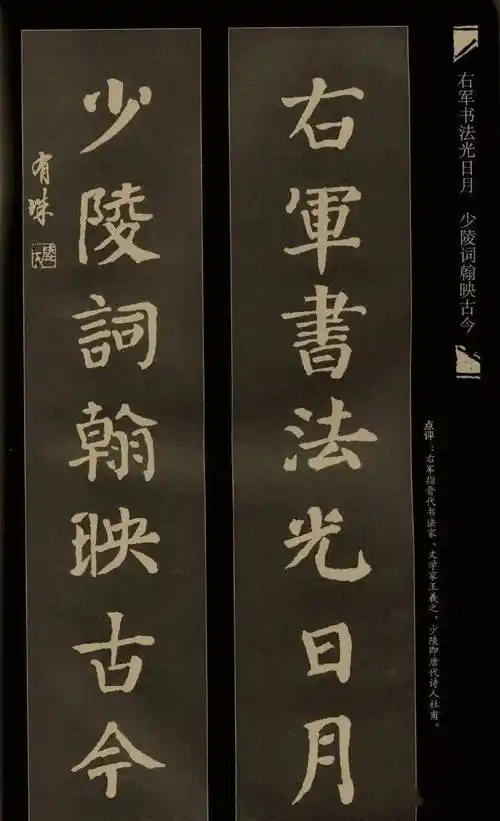 右军书法光日月 少陵词翰映古今
点评：右军指晋代书法家、文学家王羲之，少陵即唐代诗人杜甫。
右軍書法光日月
少陵詞翰映古今
有珠